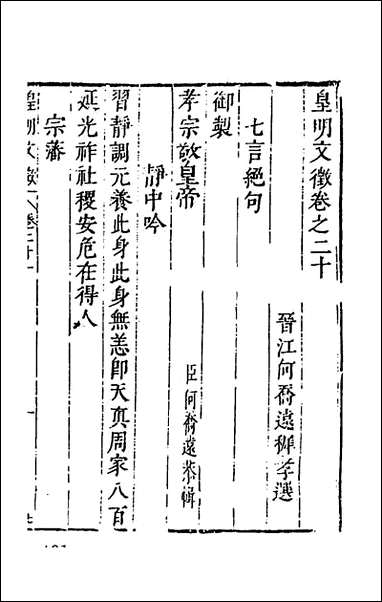 皇明文徵卷之二十
晉江何喬遠穉孝選
七言絕句
御製
孝宗敬皇帝
臣何喬遠恭輯
靜中吟
習靜調元養此身此身無恙卽天真周家八百
延光祚社稷安危在得人
宗藩
皇明文徵